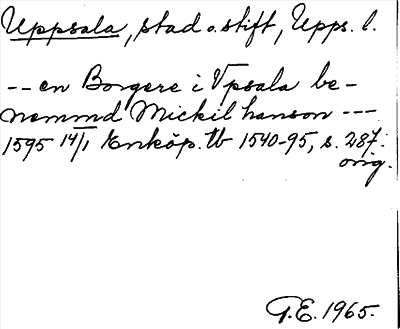 Uppsala, stad o. stift, Upps. l.
-- en Borgere i Vpsala be-
nemmd Mickil hanson ---
1595 14/1 Enköp. tb 1540-95, s. 287.
orig.
G.E. 1965.